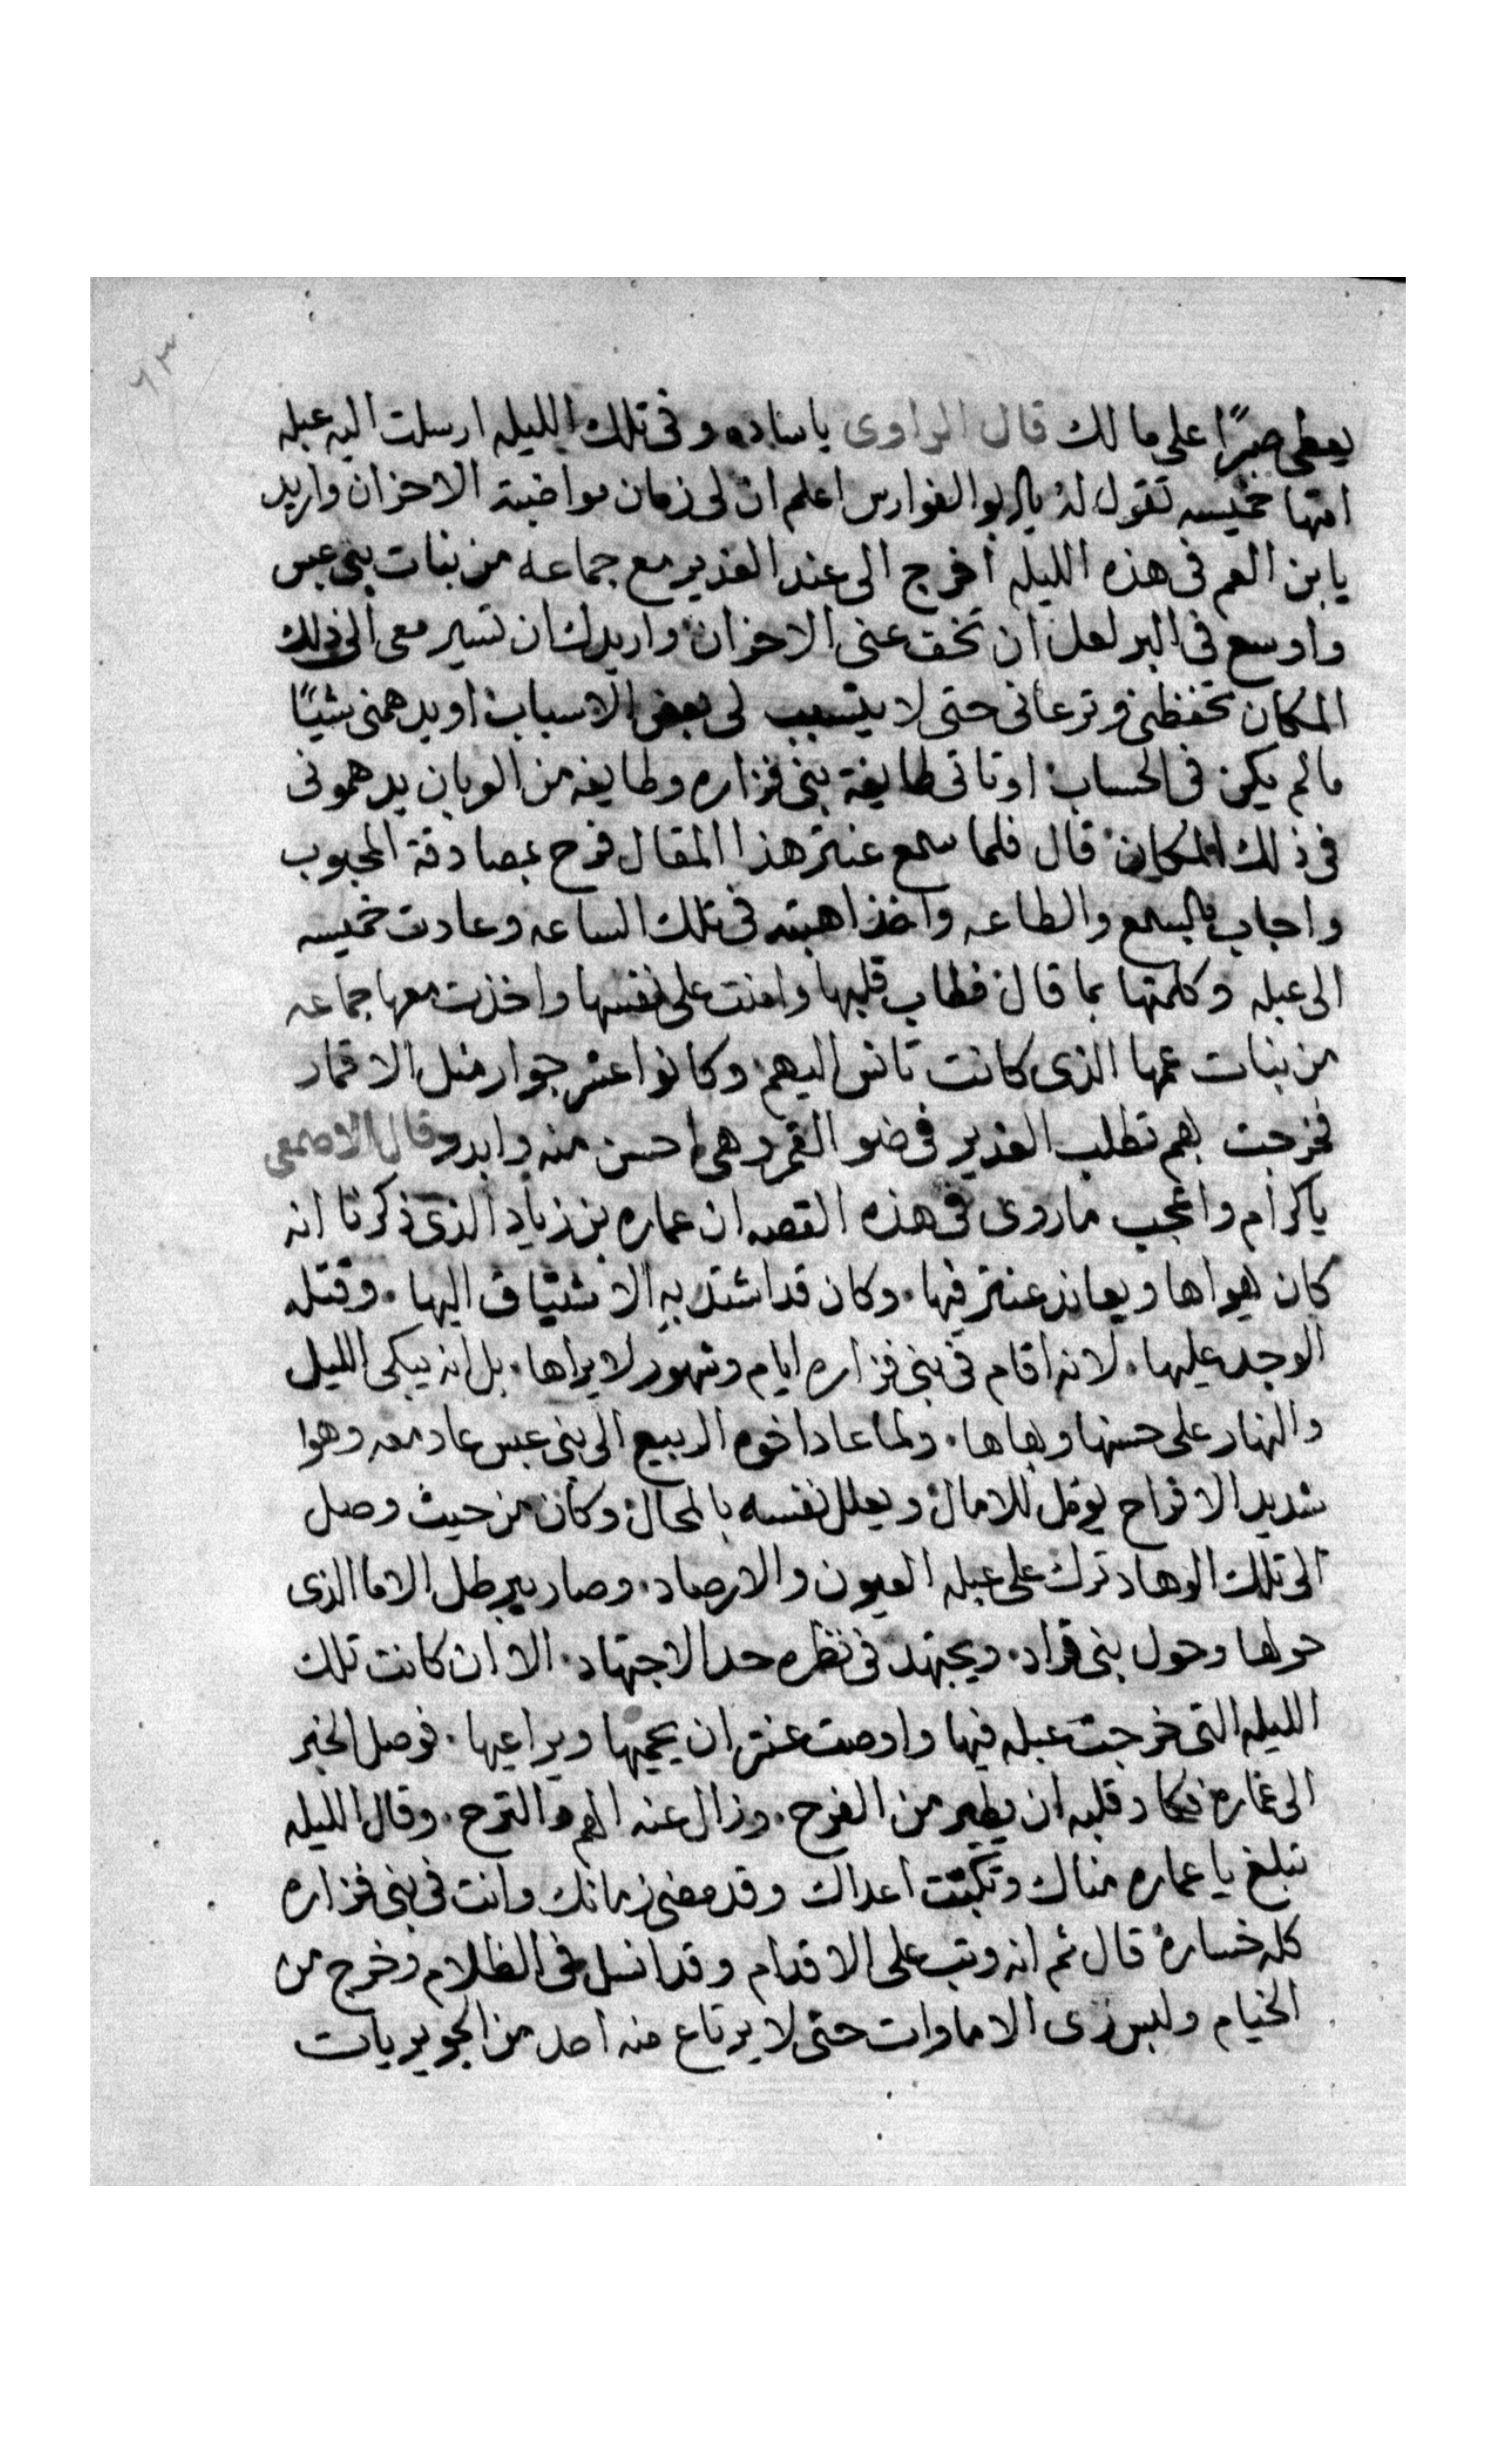 ٦٣
يعطى صبرًا على مالك قال الراوى ياساده وفى تلك الليله ارسلت اليه عبله
امتها خميسه تقول له يا ابو الفوارس اعلم ان لى زمان مواضبة الاحزان واريد
يا بن العم فى هذه الليله اخرج الى عند الغدير مع جماعه من بنات بنى عبس
واوسع فى البر لعل ان تخف عنى الاحزان واريدك ان تسير معى الى ذلك
المكان تحفظنى وترعانى حتى لا يتسبب لى بعض الاسباب او يدهمنى شيئًا
مالم يكن فى الحساب او تاتى طايفة بنى فزاره وطايفه من الوبان يدهمونى
فى ذلك المكان قال فلما سمع عنتر هذا المقال فرح بمصادقة المحبوب
واجاب بالسمع والطاعه واخذ اهبته فى تلك الساعه وعادت خميسه
الى عبله وكلمتها بما قال فطاب قلبها وامنت على نفسها واخذت معها جماعه
من بنات عمها الذى كانت تانس اليهم وكانوا عشر جوار مثل الاقمار
فخرجت بهم تطلب الغدير فى ضو القمر وهى احسن منه وابدر وقال الاصمعى
ياكرام واعجب ماروى فى هذه القصه ان عماره بن زياد الذى ذكرنا انه
كان يهواها ويعاند عنتر فيها. وكان قد اشتد به الاشتياق اليها. وقتله
الوجد عليها. لانه اقام فى بنى فزاره ايام وشهور لا يراها. بل انه يبكى الليل
والنهار على حسنها وبهاها. ولما عاد اخوه الربيع الى بنى عبس عاد معه وهوا
شديد الافراح يومل للامال ويعلل نفسه بالمحال وكان من حيث وصل
الى تلك الوهاد ترك على عبله العيون والارصاد. وصار يبرطل الاما الذى
حولها وحول بنى قراد. ويجتهد فى نظره حد الاجتهاد. الا ان كانت تلك
الليله التى خرجت عبله فيها واوصت عنتر ان يحميها ويراعيها. فوصل الخبر
الى عماره فكاد قلبه ان يطير من الفرح. وزال عنه الهم والترح. وقال الليله
تبلغ يا عماره مناك وتكبت اعداك وقد مضى زمانك وانت فى بنى فزاره
كله خساره قال ثم انه وثب على الاقدام وقد انسل فى الظلام وخرج من
الخيام ولبس زى الاماوات حتى لا يرتاع منه احد من الجويريات